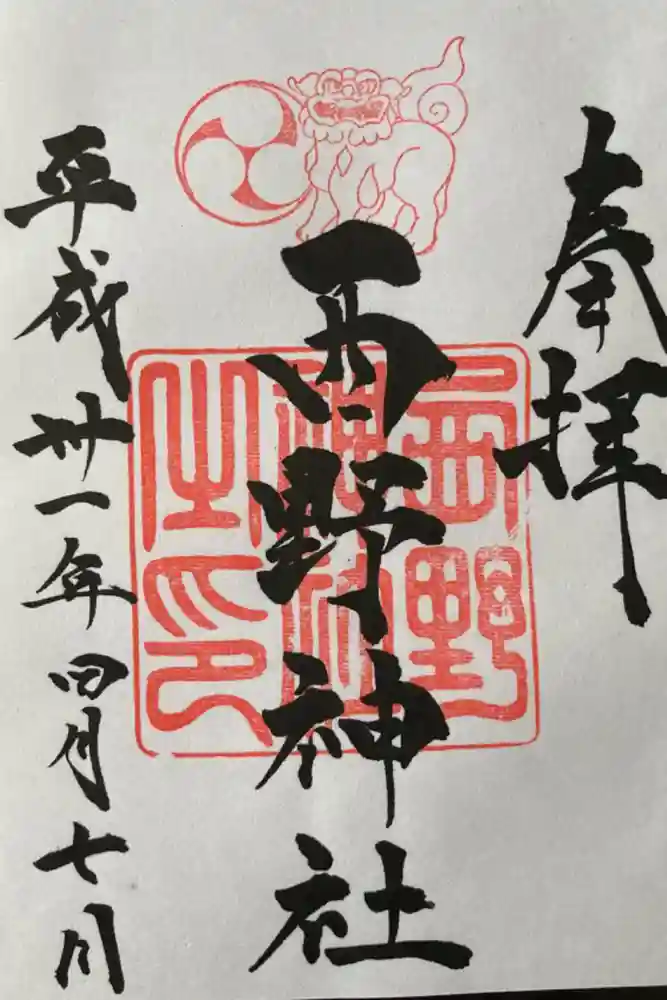 奉拝
西野神社
平成卅一年四月七日
西野
神社
之印